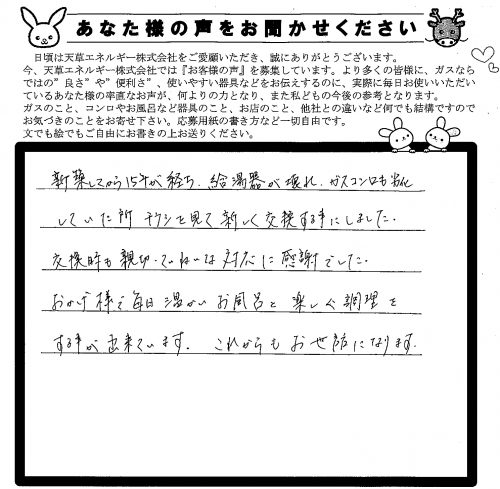 あなた様の声をお聞かせください
日頃は天草エネルギー株式会社をご愛顧いただき、誠にありがとうございます。
今、天草エネルギー株式会社では『お客様の声』を募集しています。より多くの皆様に、ガスなら
ではの”良さ”や”便利さ”、使いやすい器具などをお伝えするのに、実際に毎日お使いいただい
ているあなた様の率直なお声が、何よりの力となり、また私どもの今後の参考となります。
ガスのこと、コンロやお風呂など器具のこと、お店のこと、他社との違いなど何でも結構ですので
お気づきのことをお寄せ下さい。応募用紙の書き方など一切自由です。
文でも絵でもご自由にお書きの上お送りください。
新築してから15年が経ち、給湯器が壊れ、ガスコンロも劣化
していた所チラシを見て新しく交換する事にしました。
交換時も親切、ていねいな対応に感謝でした。
おかげ様で毎日温かいお風呂と楽しく調理を
する事が出来ています。これからもお世話になります。